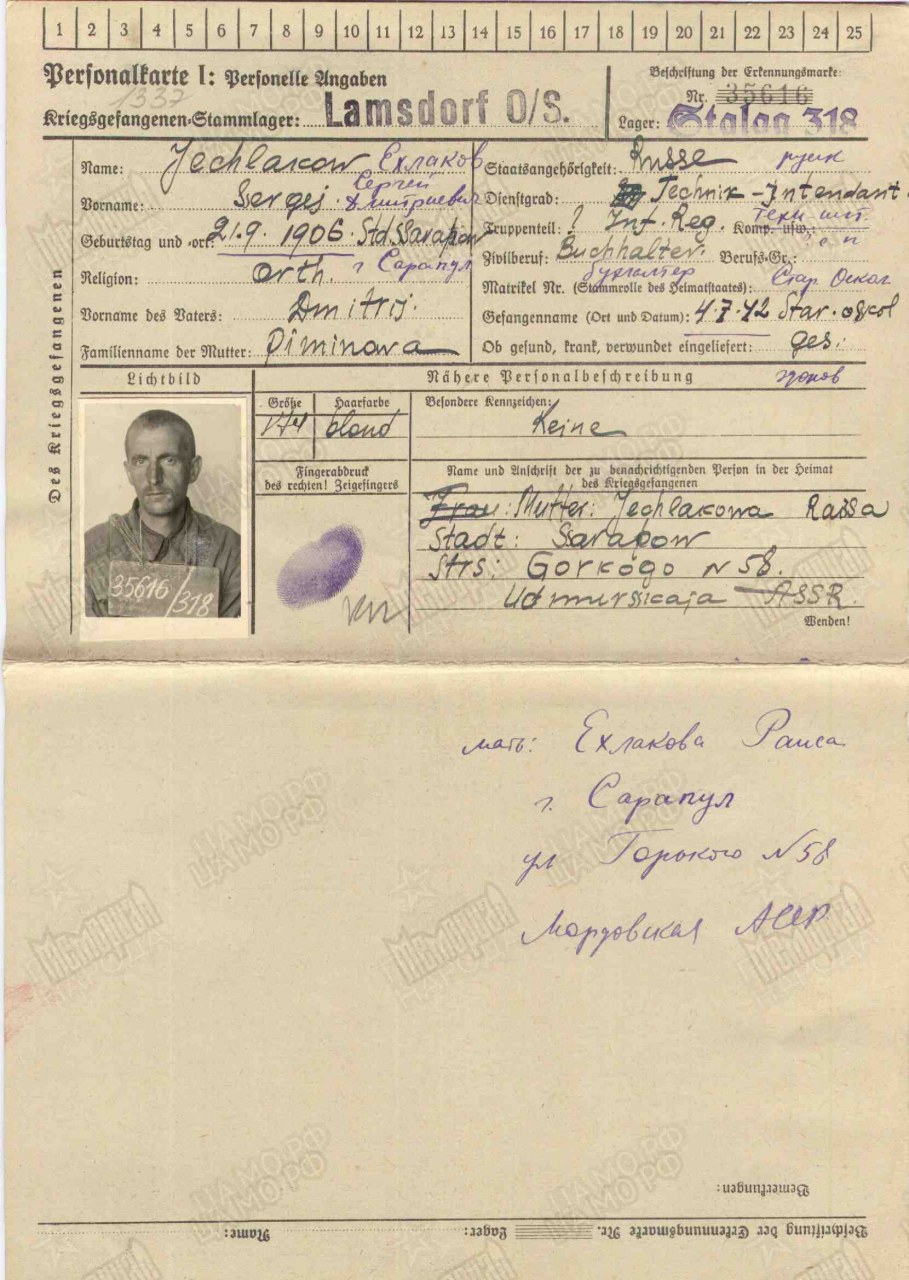 1 2 3 4 5 6 7 8 9 10 11 12 13 14 15 16 17 18 19 20 21 22 23 24 25
Personalkarte I: Personelle Angaben
1337
Kriegsgefangenen-Stammlager: Lamsdorf O/S.
Beschriftung der Erkennungsmarke:
Nr. 35616
Lager: Stalag 318
Des Kriegsgefangenen
Name: Jechlakow Ехлаков
Vorname: Sergej Сергей Дмитриевич
Geburtstag und -ort: 21.9.1906. Std. Sarapow
г Сарапул
Religion: Orth.
Vorname des Vaters: Dmitrij.
Familienname der Mutter: Diminowa
Staatsangehörigkeit: Russe
Dienstgrad: Technik-Intendant.
Truppenteil: ? Inf. Reg. Komp. usw.:
Zivilberuf: Buchhalter. Berufs-Gr.:
бухгалтер
Matrikel Nr. (Stammrolle des Heimatstaates): Стар Оскол
Gefangenname (Ort und Datum): 4.7.42 Star. oskol
Ob gesund, krank, verwundet eingeliefert: ges.
здоров
Lichtbild
Nähere Personalbeschreibung
Größe Haarfarbe Besondere Kennzeichen:
174 blond Keine
Fingerabdruck
des rechten! Zeigefingers
Name und Anschrift der zu benachrichtigenden Person in der Heimat
des Kriegsgefangenen
Frau: Mutter: Jechlakowa Raisa
Stadt: Sarapow
Strs: Gorkogo N 58.
Udmurskaja ASSR.
Wenden!
35616/318
мать: Ехлакова Раиса
г. Сарапул
ул Горького N 58
Мордовская АССР.
Bemerkungen:
Beschriftung der Erkennungsmarke Nr. Lager: Name:
ЦАМО РФ
ПАМЯТЬ НАРОДА